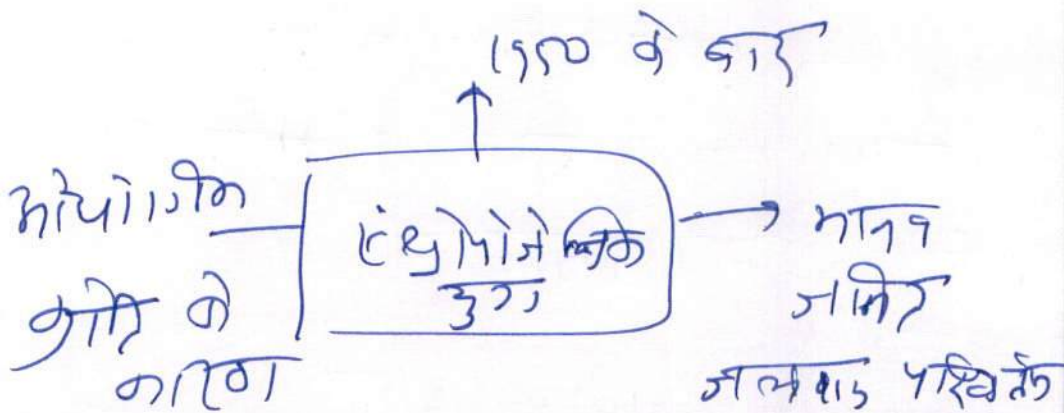 1950 के बाद
औद्योगिक
क्रांति के
कारण
एंथ्रोपोजेनिक
युग
मानव
जनित
जलवायु परिवर्तन